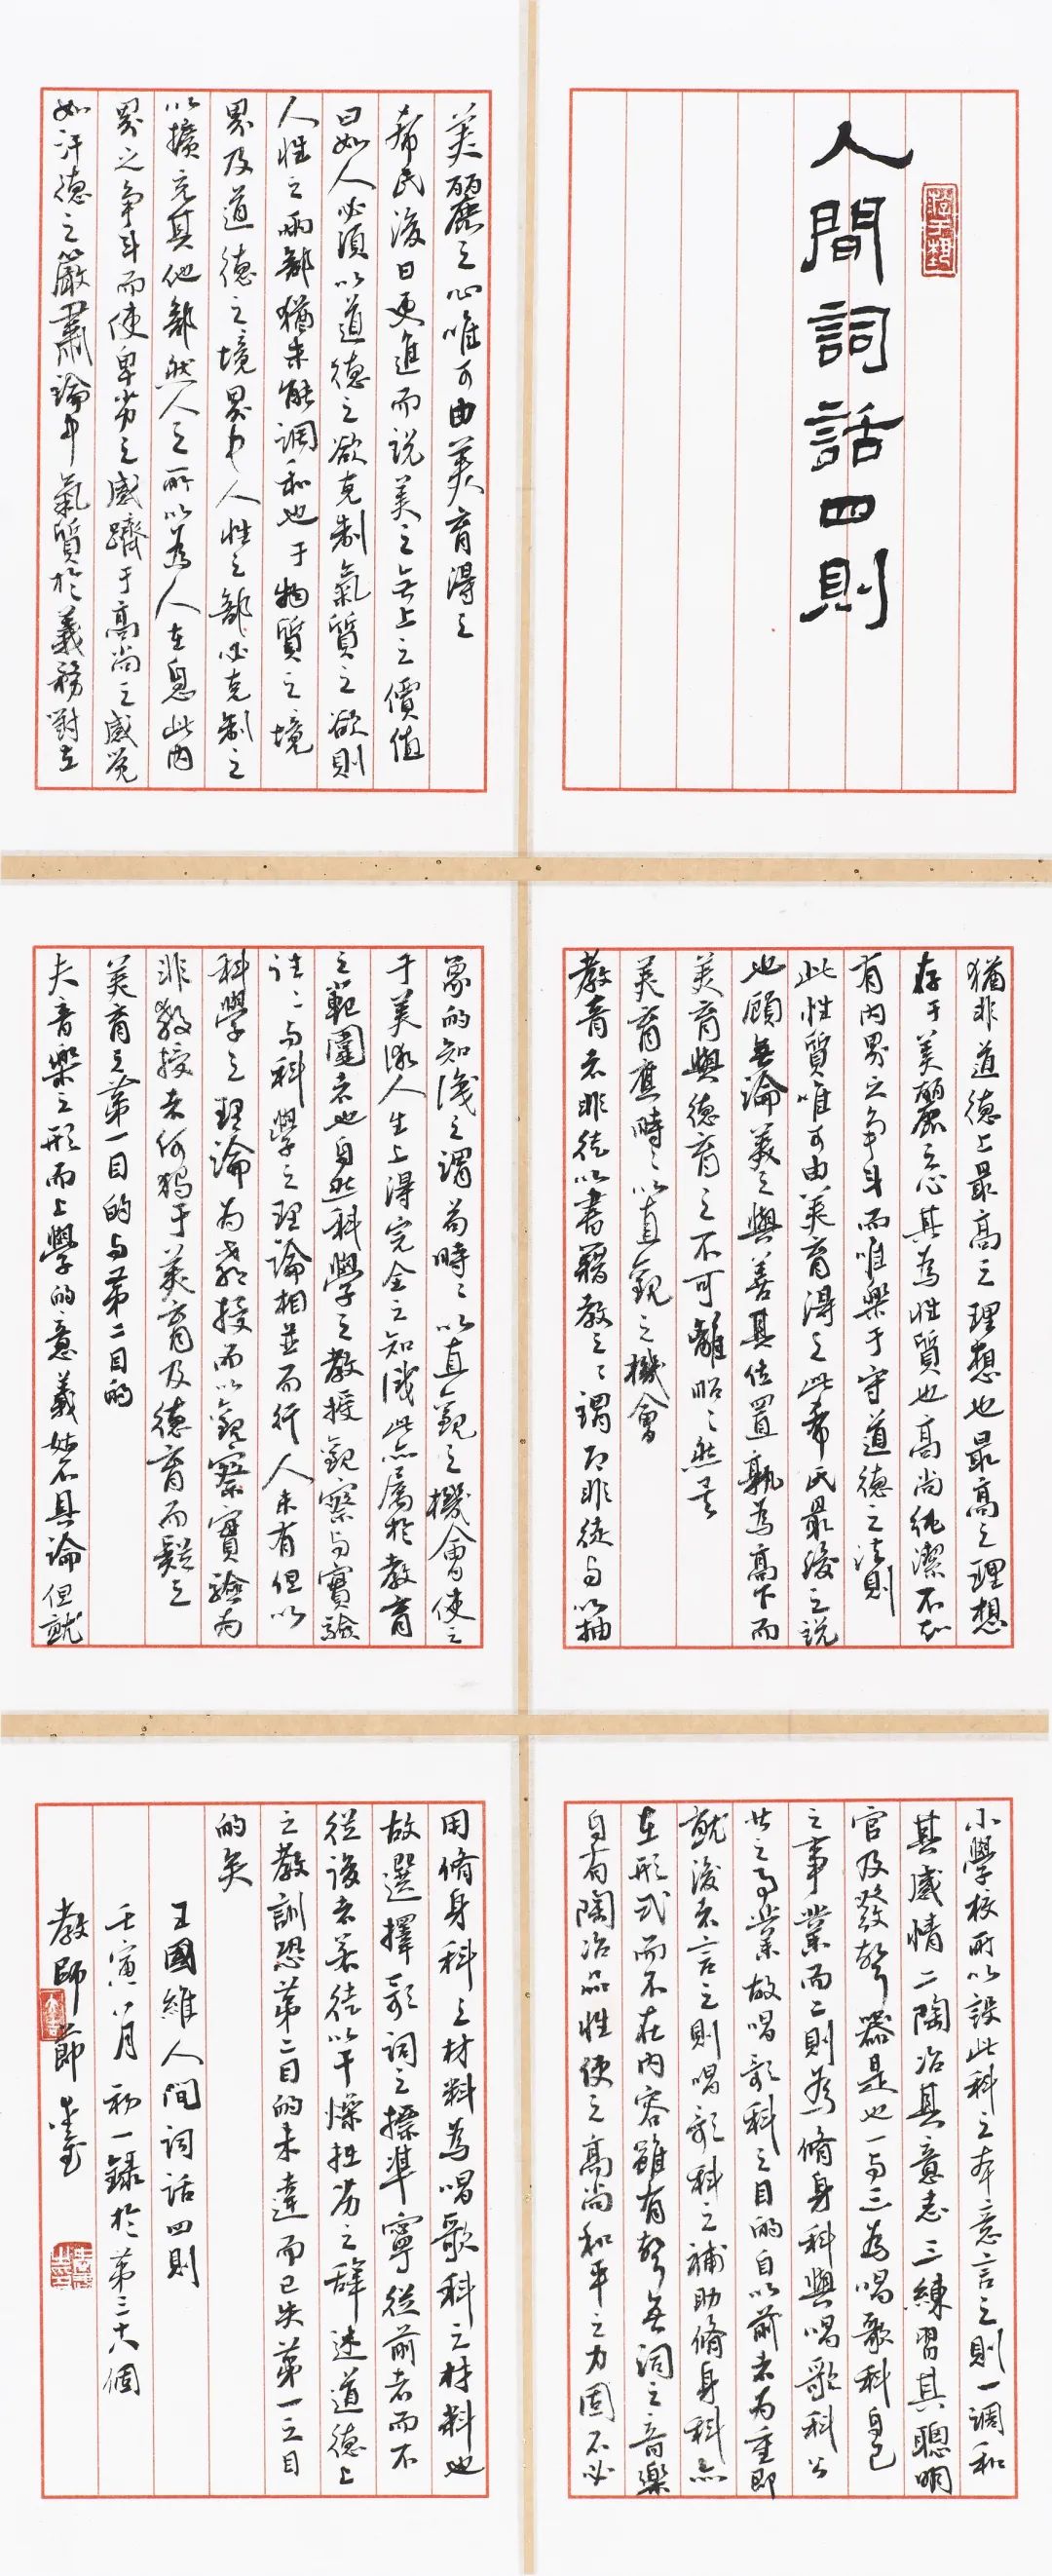 人間詞話四則
美麗之心唯可由美育得之
希氏後日更進而説美之無上之價值
曰如人必須以道德之欲克制氣質之欲則
人性之兩部猶未能調和也于物質之境
界及道德之境界中人性之一部必克制之
以擴充其他部然人之所以為人在息此内
界之争鬥而使卑劣之感躋于高尚之感覺
如汗德之嚴肅論中氣質於義務對立
猶非道德上最高之理想也最高之理想
存于美麗之心其為性質也高尚純潔不知
有内界之争鬥而唯樂于守道德之法則
此性質唯可由美育得之此希氏最後之説
也顧無論美之與善其位置孰為高下而
美育與德育之不可離昭々然矣
美育應時々以直觀之機會
教育者非徒以書籍教之々謂即非徒与以抽
象的知識之謂苟時々以直觀之機會使之
于美術人生上得完全之知識此亦屬於教育
之範圍者也自然科學之教授觀察与實驗
往々与科學之理論相並而行人未有但以
科學之理論為教授而以觀察實驗為
非教授者何獨于美育及德育而疑之
美育之第一目的与第二目的
夫音樂之形而上學的意義姑不具論但就
小學校所以設此科之本意言之則一調和
其感情二陶冶其意志三練習其聰明
官及發聲器是也一与三為唱歌科自己
之事業而二則為脩身科與唱歌科公
共之事業故唱歌科之目的自以前者為重即
就後者言之則唱歌科之補助脩身科亦
在形式而不在内容雖有聲無詞之音樂
自有陶冶品性使之高尚和平之力固不必
用脩身科之材料為唱歌科之材料也
故選擇歌詞之標準寧從前者而不
從後者若徒以干燥拙劣之辭述道德上
之教訓恐第二目的未達而已失第一之目
的矣
王國維人間詞話四則
壬寅八月初一録於第三十八個
教師節